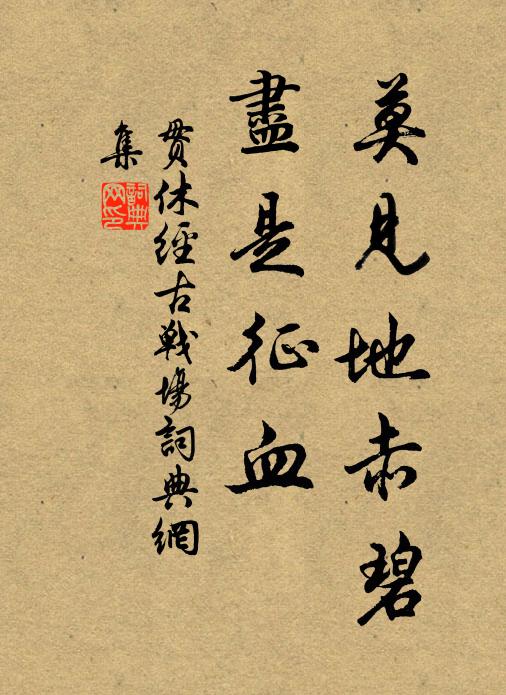 莫見地赤碧
盡是征血
貫休經古戰場詞典網
集
詞典
网印